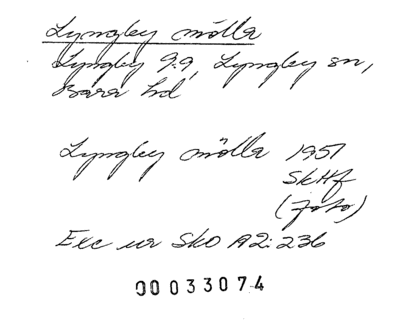 Lyngby mölla
Lyngby 9:9, Lyngby sn,
Bara hd
Lyngby mölla 1951
SkHf
(foto)
Exc ur SkO A2:236
00033074